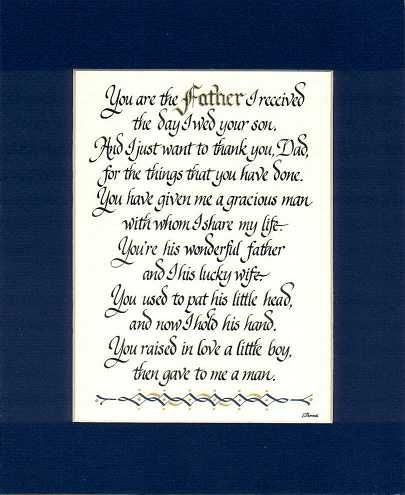 You are the Father I received
the day I wed your son.
And I just want to thank you, Dad,
for the things that you have done.
You have given me a gracious man
with whom I share my life.
You're his wonderful father
and I his lucky wife.
You used to pat his little head,
and now I hold his hand.
You raised in love a little boy,
then gave to me a man.